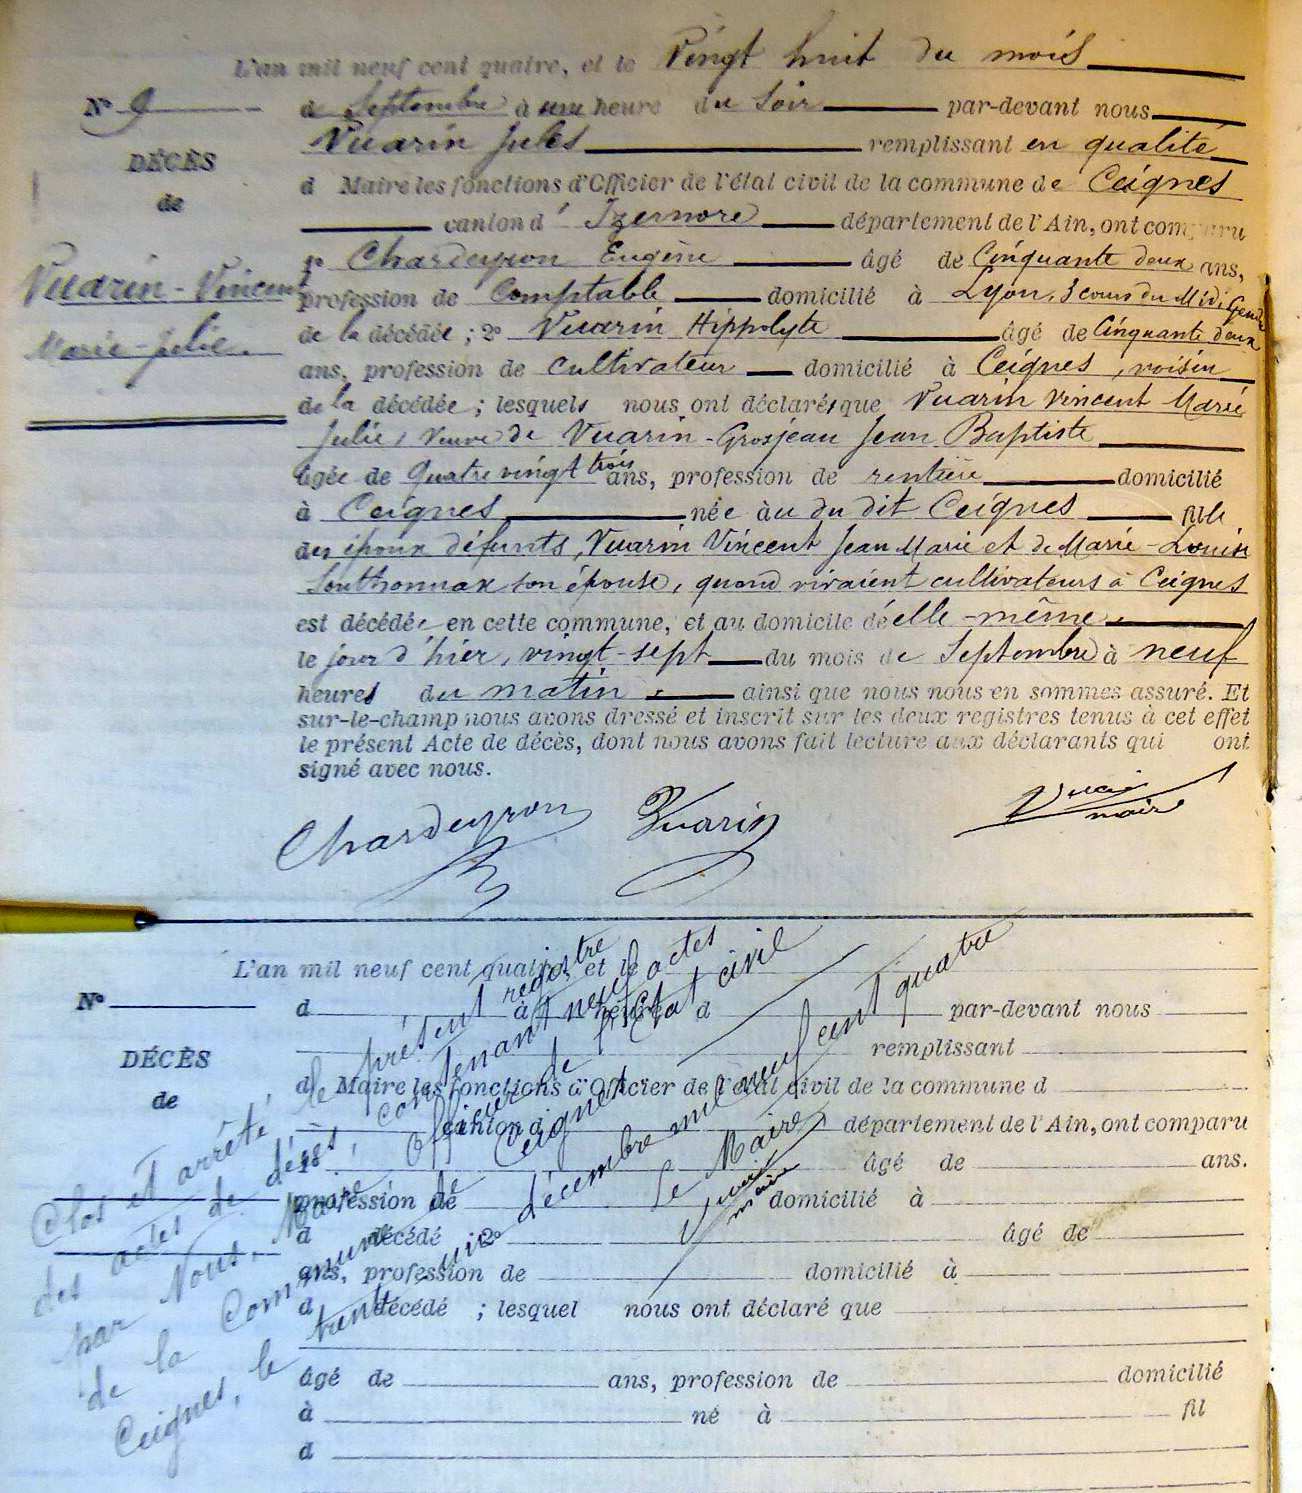 L'an mil neuf cent quatre, et le Vingt huit du mois
N° 9
de Septembre à une heure du Soir par-devant nous
Vuarin Jules remplissant en qualité
DÉCÈS
d Maire les fonctions d'Officier de l'état civil de la commune de Ceignes
de
canton d' Izernore département de l'Ain, ont comparu
Vuarin-Vincent
Marie-Julie.
1° Chardeyron Eugène âgé de Cinquante deux ans,
profession de Comptable domicilié à Lyon, 3 cours du Midi, Gendre
de la décédée ; 2° Vuarin Hippolyte âgé de Cinquante deux
ans, profession de Cultivateur domicilié à Ceignes, voisin
de la décédée ; lesquels nous ont déclaré que Vuarin Vincent Marie
Julie, Veuve de Vuarin-Grosjean Jean Baptiste
âgée de Quatre vingt trois ans, profession de rentière domicilié
à Ceignes née à u du dit Ceignes fille
des époux défunts, Vuarin Vincent Jean Marie et de Marie-Louise
Southonnax son épouse, quand vivaient cultivateurs à Ceignes
est décédée en cette commune, et au domicile d'elle-même
le jour d'hier, vingt-sept du mois de Septembre à neuf
heures du matin ainsi que nous nous en sommes assuré. Et
sur-le-champ nous avons dressé et inscrit sur les deux registres tenus à cet effet
le présent Acte de décès, dont nous avons fait lecture aux déclarants qui ont
signé avec nous.
Chardeyron Vuarin Vuarin
maire
L'an mil neuf cent quatre, et le
N°
d à heure d par-devant nous
remplissant
DÉCÈS
d Maire les fonctions d'Officier de l'état civil de la commune d
de
canton d département de l'Ain, ont comparu
1° âgé de ans.
profession de domicilié à
d décédé 2° âgé de
ans, profession de domicilié à
d décédé ; lesquel nous ont déclaré que
âgé de ans, profession de domicilié
à né à fil
d
Clos et arrêté le présent registre
des actes de décès, contenant neuf actes
par Nous, Maire, Officier de l'Etat civil
de la Commune de Ceignes
Ceignes, le trente-un décembre mil neuf cent quatre
Le Maire
Vuarin
maire